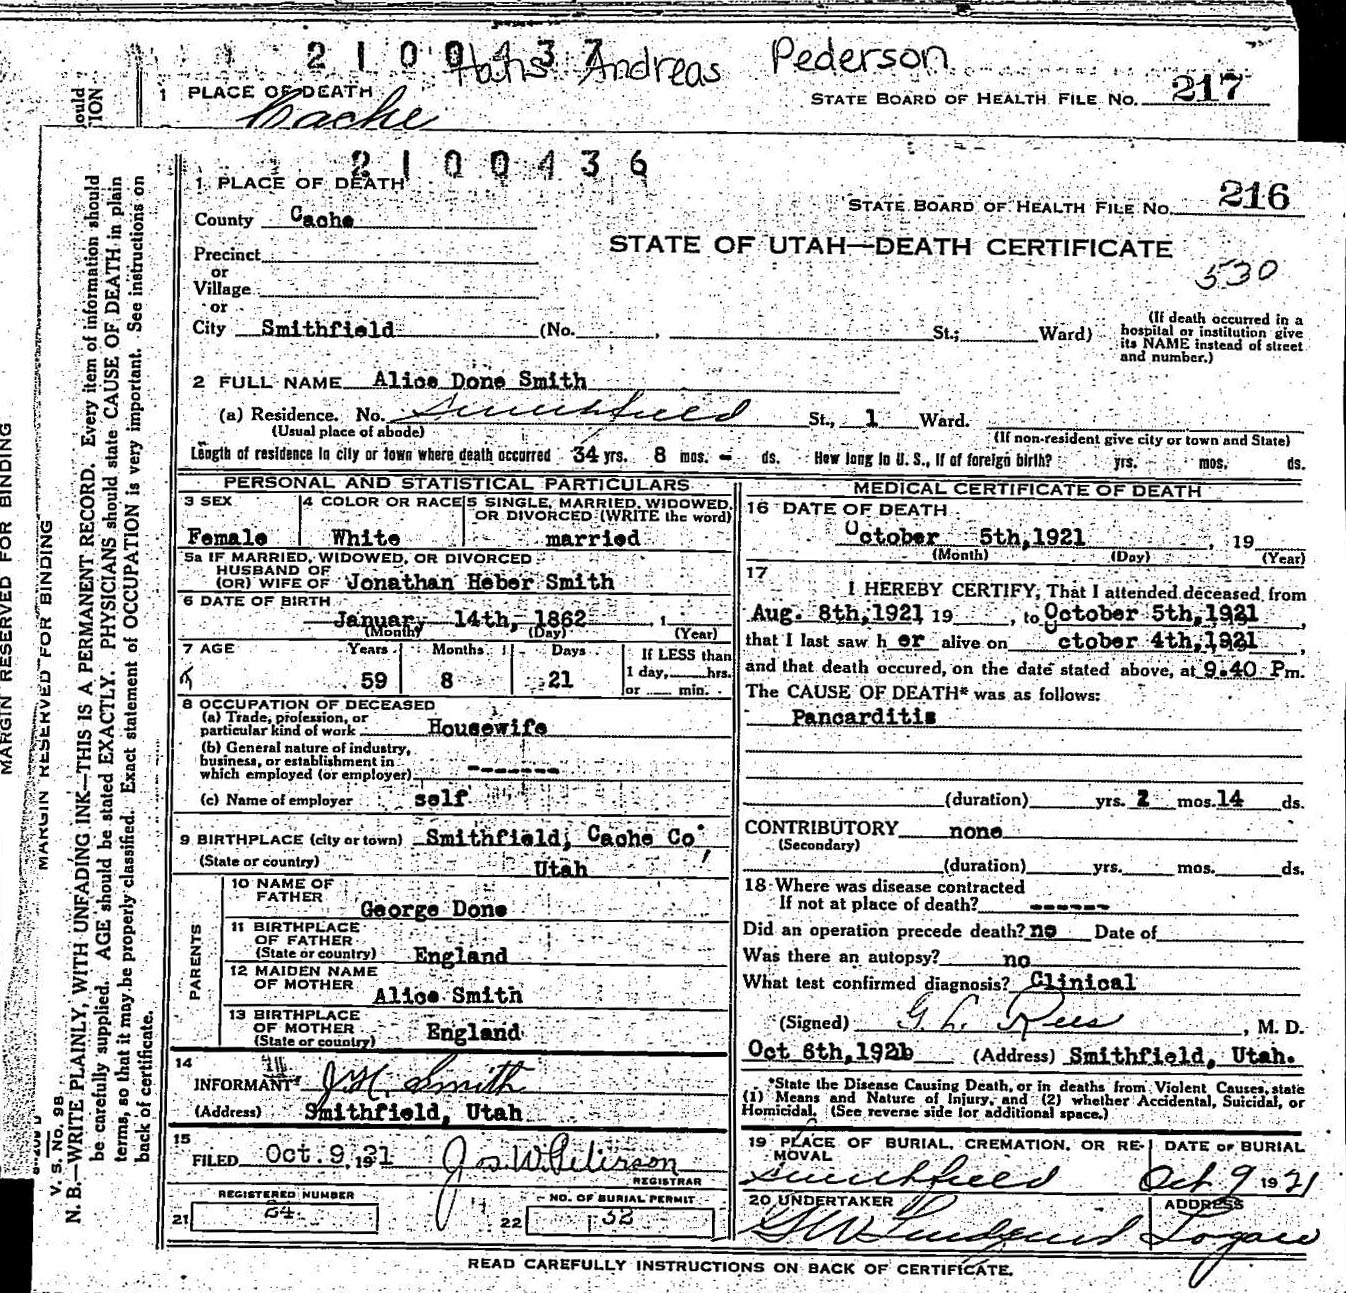 2100437
Hans Andreas Pederson
1 PLACE OF DEATH
STATE BOARD OF HEALTH FILE No. 217
Cache
ould
TION
MARGIN RESERVED FOR BINDING
MARGIN RESERVED FOR BINDING
V. S. No. 98
N. B.—WRITE PLAINLY, WITH UNFADING INK—THIS IS A PERMANENT RECORD. Every item of information should
be carefully supplied. AGE should be stated EXACTLY. PHYSICIANS should state CAUSE OF DEATH in plain
terms, so that it may be properly classified. Exact statement of OCCUPATION is very important. See instructions on
back of certificate.
2100436
1 PLACE OF DEATH
STATE BOARD OF HEALTH FILE No. 216
County Cache
STATE OF UTAH—DEATH CERTIFICATE
530
Precinct
or
Village
or
City Smithfield (No. , St.; Ward)
(If death occurred in a
hospital or institution give
its NAME instead of street
and number.)
2 FULL NAME Alice Done Smith
(a) Residence. No. Smithfield St., 1 Ward.
(Usual place of abode) (If non-resident give city or town and State)
Length of residence in city or town where death occurred 34 yrs. 8 mos. - ds. How long in U. S., if of foreign birth? yrs. mos. ds.
PERSONAL AND STATISTICAL PARTICULARS
3 SEX
Female
4 COLOR OR RACE
White
5 SINGLE, MARRIED, WIDOWED,
OR DIVORCED (WRITE the word)
married
5a IF MARRIED, WIDOWED, OR DIVORCED
HUSBAND OF
(OR) WIFE OF Jonathan Heber Smith
6 DATE OF BIRTH
January 14th, 1862 , 1
(Month) (Day) (Year)
7 AGE Years Months Days If LESS than
1 day, hrs.
59 8 21 or min.
8 OCCUPATION OF DECEASED
(a) Trade, profession, or
particular kind of work Housewife
(b) General nature of industry,
business, or establishment in
which employed (or employer) -------
(c) Name of employer self
9 BIRTHPLACE (city or town) Smithfield, Cache Co,
(State or country) Utah
PARENTS
10 NAME OF
FATHER
George Done
11 BIRTHPLACE
OF FATHER
(State or country) England
12 MAIDEN NAME
OF MOTHER
Alice Smith
13 BIRTHPLACE
OF MOTHER
(State or country) England
14
INFORMANT J H Smith
(Address) Smithfield, Utah
15
FILED Oct. 9, 1921 Jos. W. Peterson
REGISTRAR
REGISTERED NUMBER
21
NO. OF BURIAL PERMIT
22 32
MEDICAL CERTIFICATE OF DEATH
16 DATE OF DEATH
October 5th,1921 , 19
(Month) (Day) (Year)
17
I HEREBY CERTIFY, That I attended deceased from
Aug. 8th,1921 19 , to October 5th,1921,
that I last saw h er alive on October 4th,1921,
and that death occured, on the date stated above, at 9.40 Pm.
The CAUSE OF DEATH* was as follows:
Pancarditis
(duration) yrs. 2 mos. 14 ds.
CONTRIBUTORY none
(Secondary)
(duration) yrs. mos. ds.
18 Where was disease contracted
If not at place of death? ------
Did an operation precede death? no Date of
Was there an autopsy? no
What test confirmed diagnosis? Clinical
(Signed) G. L. Rees, M. D.
Oct 6th,1921 (Address) Smithfield, Utah.
*State the Disease Causing Death, or in deaths from Violent Causes, state
(1) Means and Nature of Injury, and (2) whether Accidental, Suicidal, or
Homicidal. (See reverse side for additional space.)
19 PLACE OF BURIAL, CREMATION, OR RE-
MOVAL
Smithfield
DATE OF BURIAL
Oct 9 1921
20 UNDERTAKER
ADDRESS
Logan
READ CAREFULLY INSTRUCTIONS ON BACK OF CERTIFICATE.